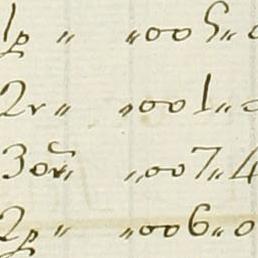 1p " "005"0
2r " "001"0
3or " "007"4
2p " "006"0